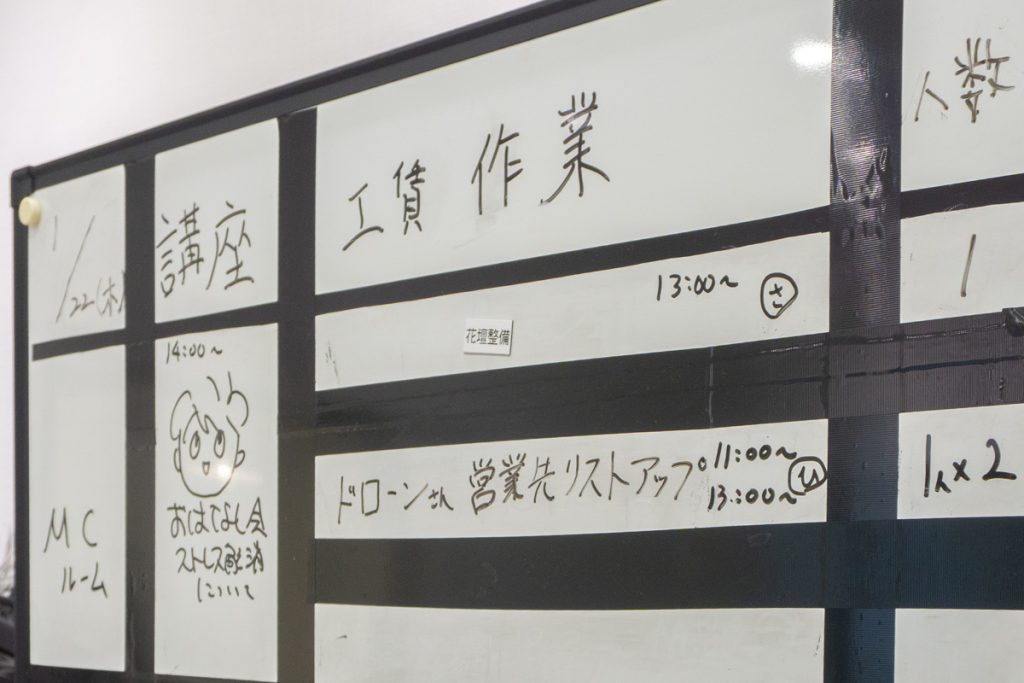 1/22(木)
講座
工賃 作業
人数
13:00~ さ
1
花壇整備
14:00~
おはなし会
ストレス解消
について
MC
ルーム
ドローンさん 営業先リストアップ
11:00~
13:00~
1人×2